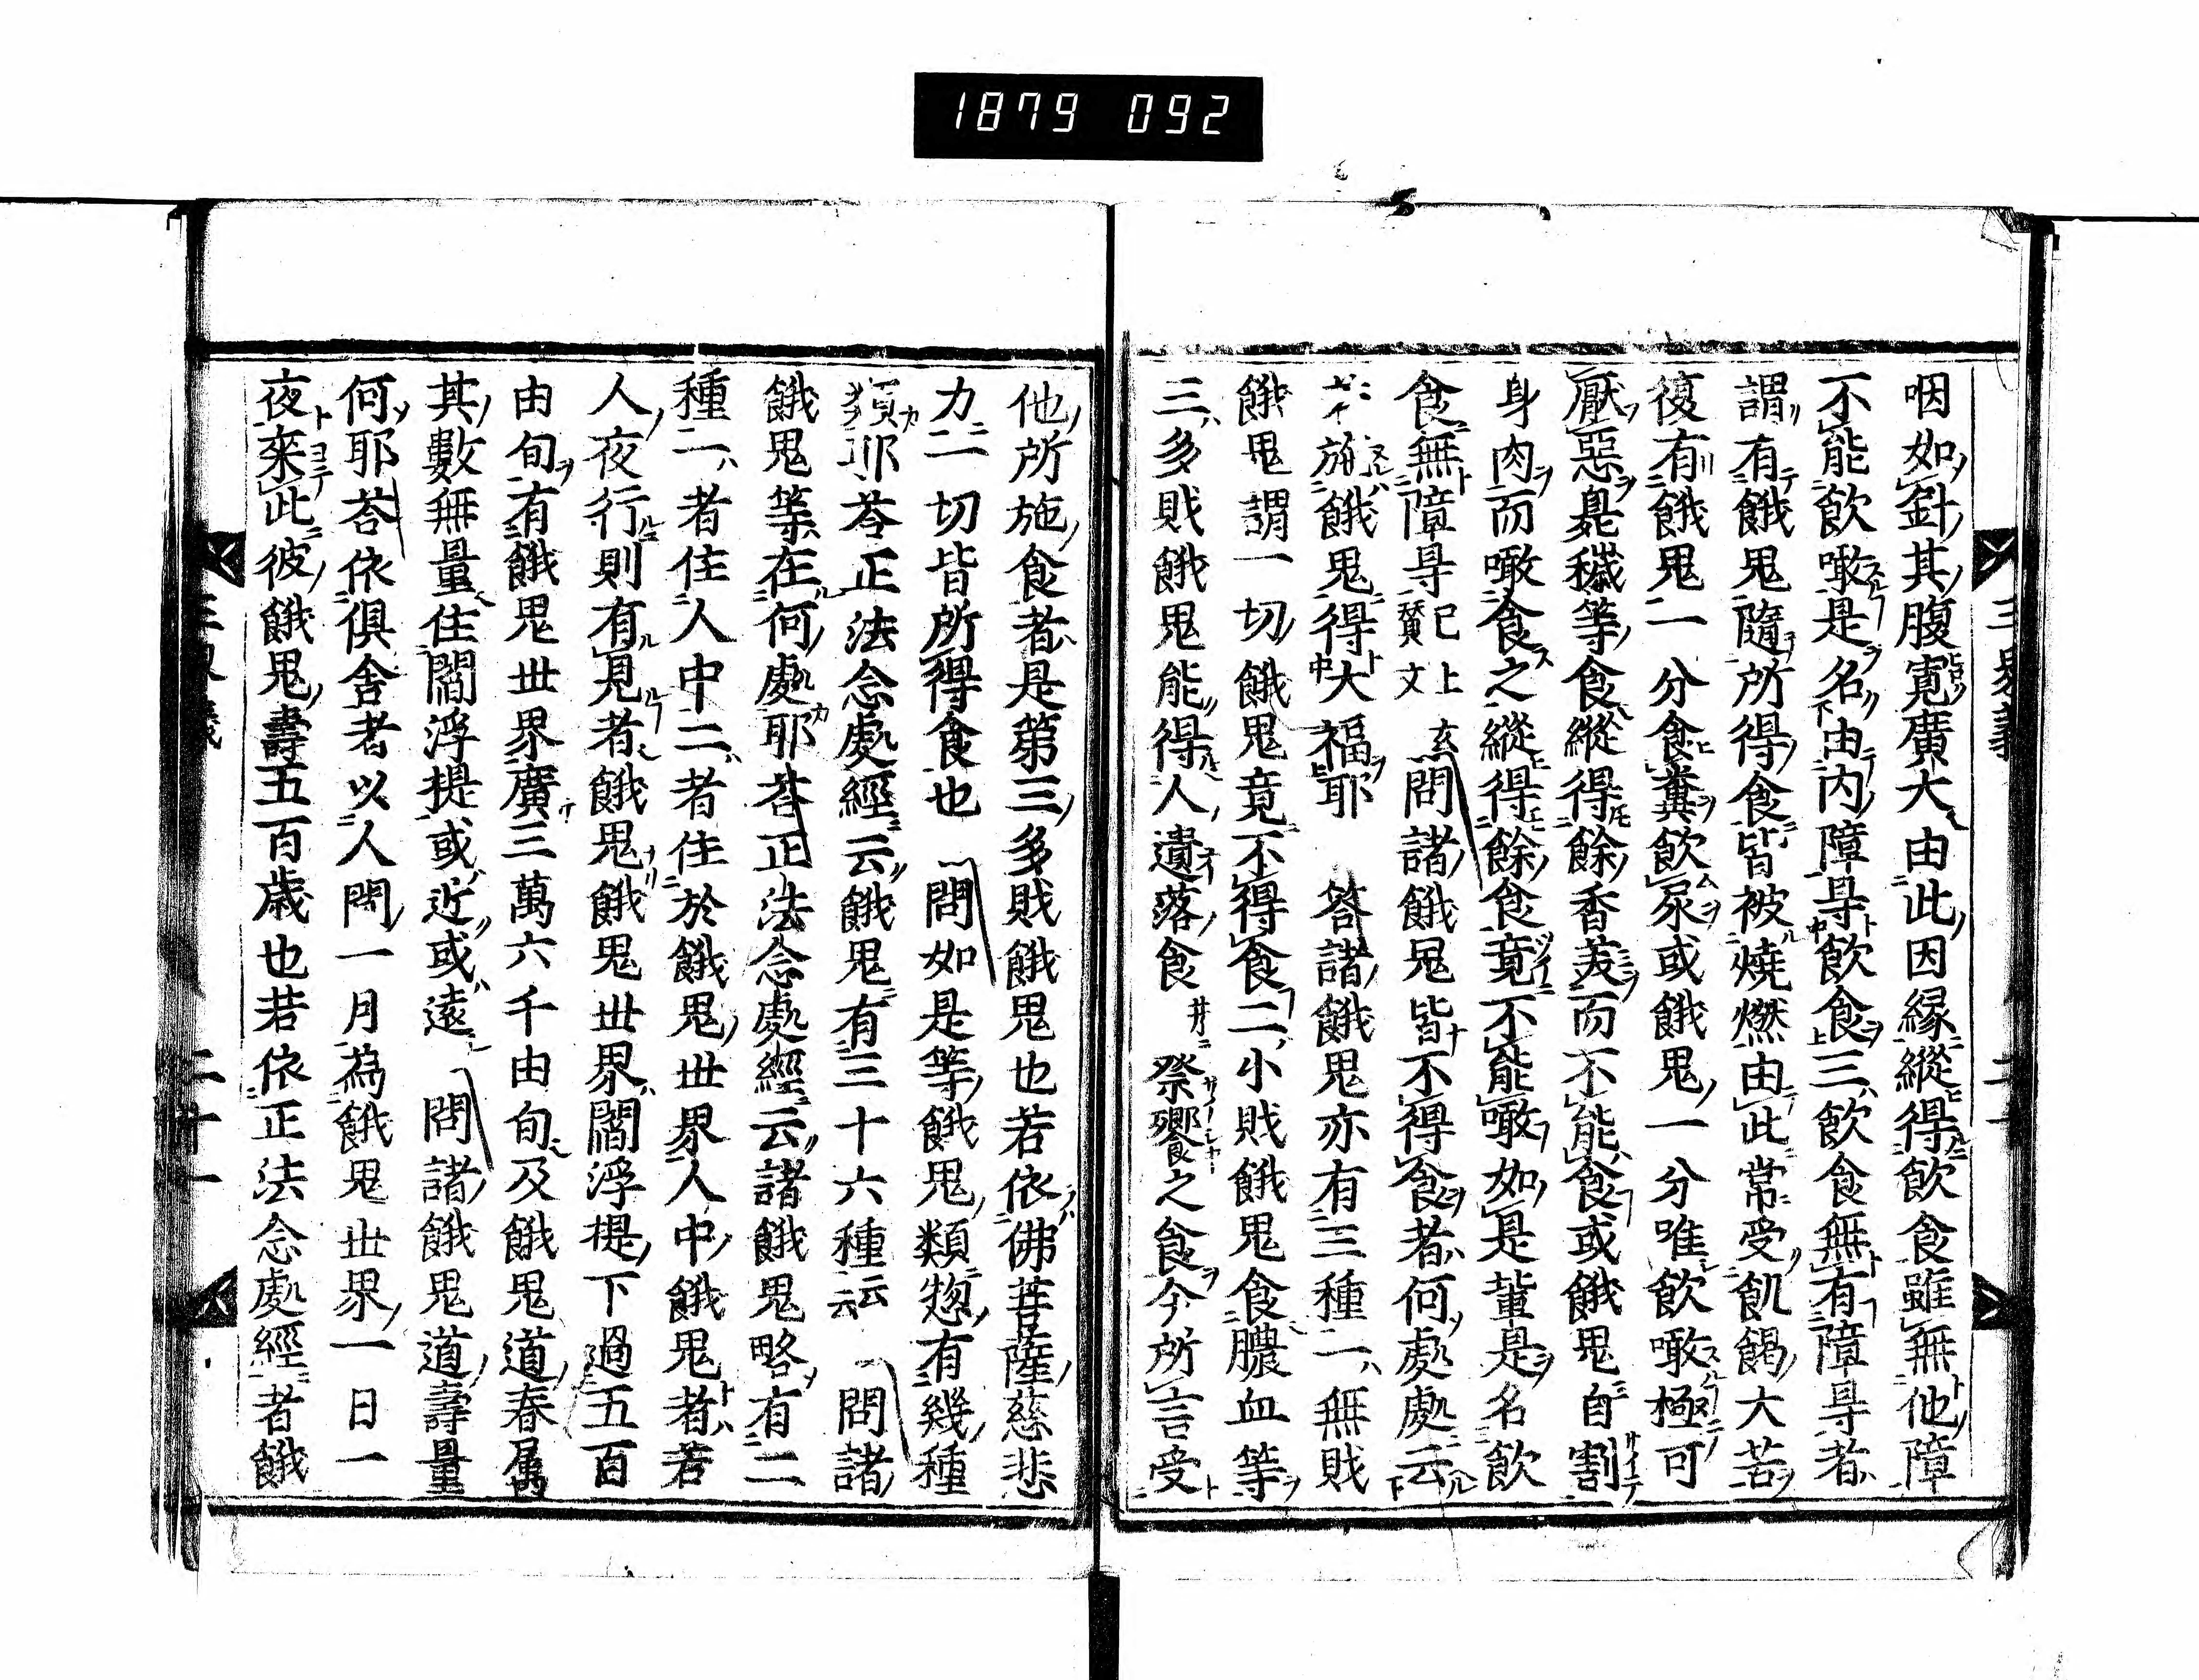 1879 092
咽如針其腹寛廣大由此因縁縱得飲食雖無他障
不能飲噉是名由内障㝵飲食三飲食無有障㝵者
謂有餓鬼隨所得食皆被燒燃由此常受飢餲大苦
復有餓鬼一分食糞飲尿或餓鬼一分唯飲噉極可
厭惡臰穢等食縱得餘香美而不能食或餓鬼自割
身肉而噉食之縱得餘食竟不能噉如是輩是名飲
食無障㝵已上賛文 玄問諸餓鬼皆不得食者何處處云
施餓鬼得大福耶 答諸餓鬼亦有三種一無賎
餓鬼謂一切餓鬼竟不得食二小賎餓鬼食膿血等
三多賎餓鬼能得人遺落食 祭饗之食今所言受
他所施食者是第三多賎餓鬼也若依佛菩薩慈悲
力一切皆所得食也 問如是等餓鬼類惣有幾種
類耶荅正法念處經云餓鬼有三十六種云云 問諸
餓鬼等在何處耶荅正法念處經云諸餓鬼略有二
種一者住人中二者住於餓鬼世界人中餓鬼者若
人夜行則有見者餓鬼餓鬼世界閻浮提下過五百
由旬有餓鬼世界廣三萬六千由旬及餓鬼道春属
其數無量住閻浮提或近或遠 問諸餓鬼道壽量
何耶荅依倶舎者以人間一月為餓鬼世界一日一
夜來此彼餓鬼壽五百歳也若依正法念處經者餓
二十一